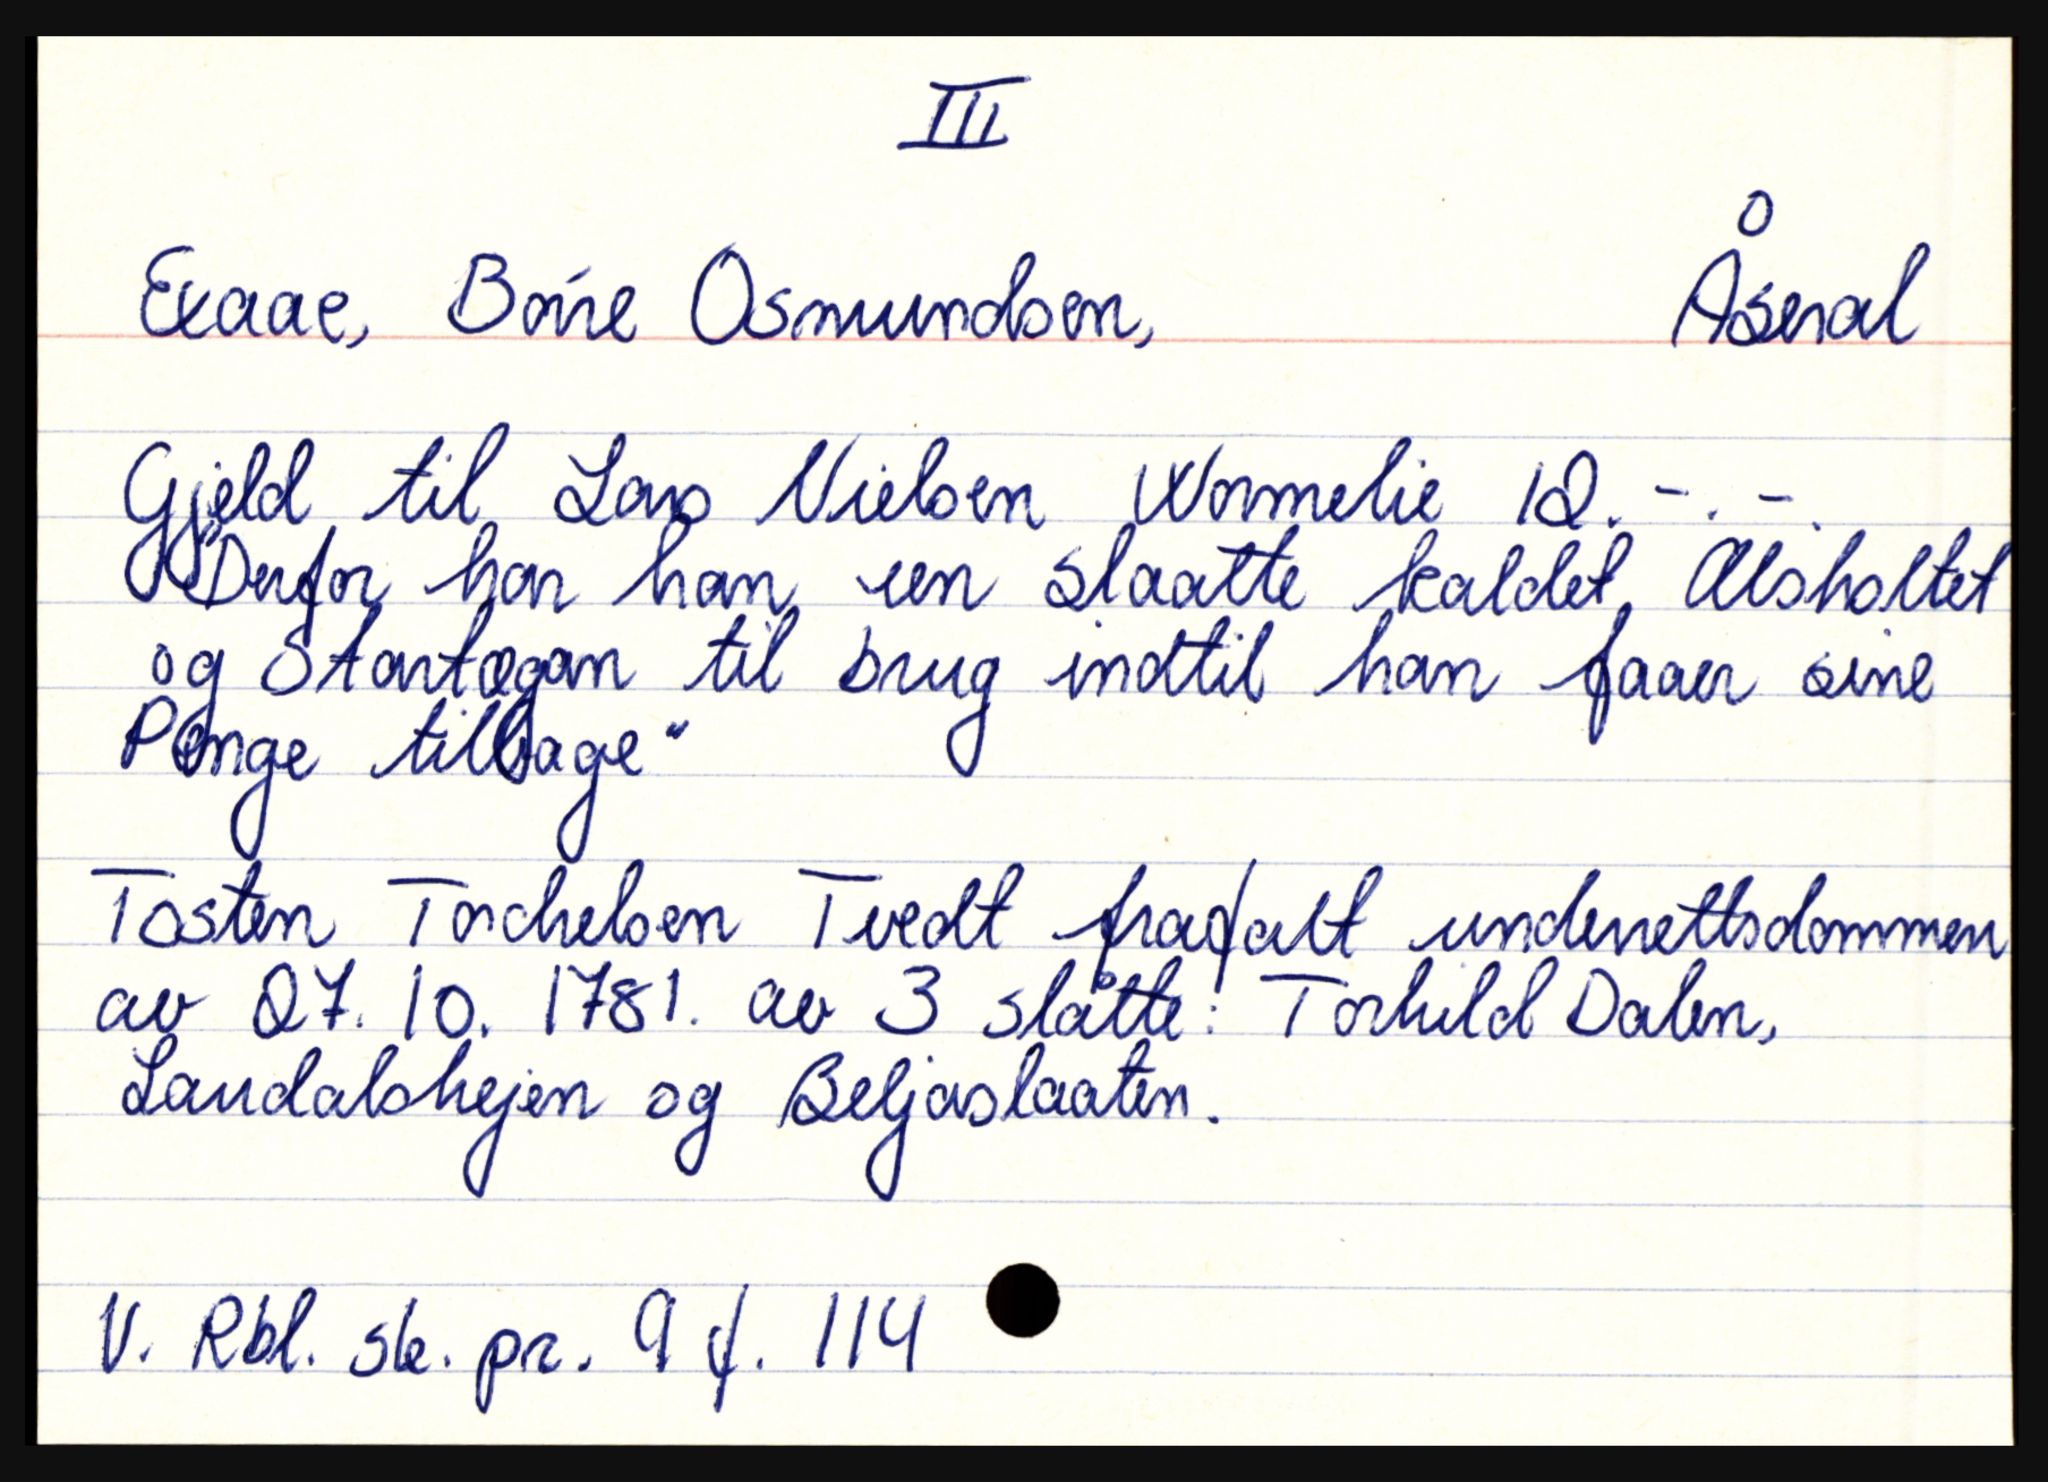 III
Exaae, Börre Osmundsen, Åseral
Gjeld til Lars Nielsen Wormelie 12. -. -.
"Derfor har han een slaatte kaldet Ølsholtet
og Startøgan til brug indtil han faaer sine
Penge tilbage"
Tosten Torchelsen Tvedt frafalt underrettsdommen
av 27. 10. 1781. av 3 slåtte: Torkild Dalen,
Laudalshejen og Beljaslaaten.
V. Rbl. sk. pr. 9 f. 114